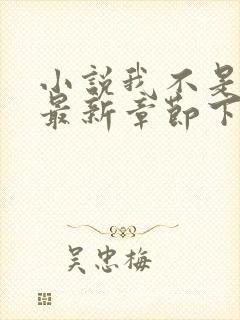 小说我不是
最新章节下
吴忠梅